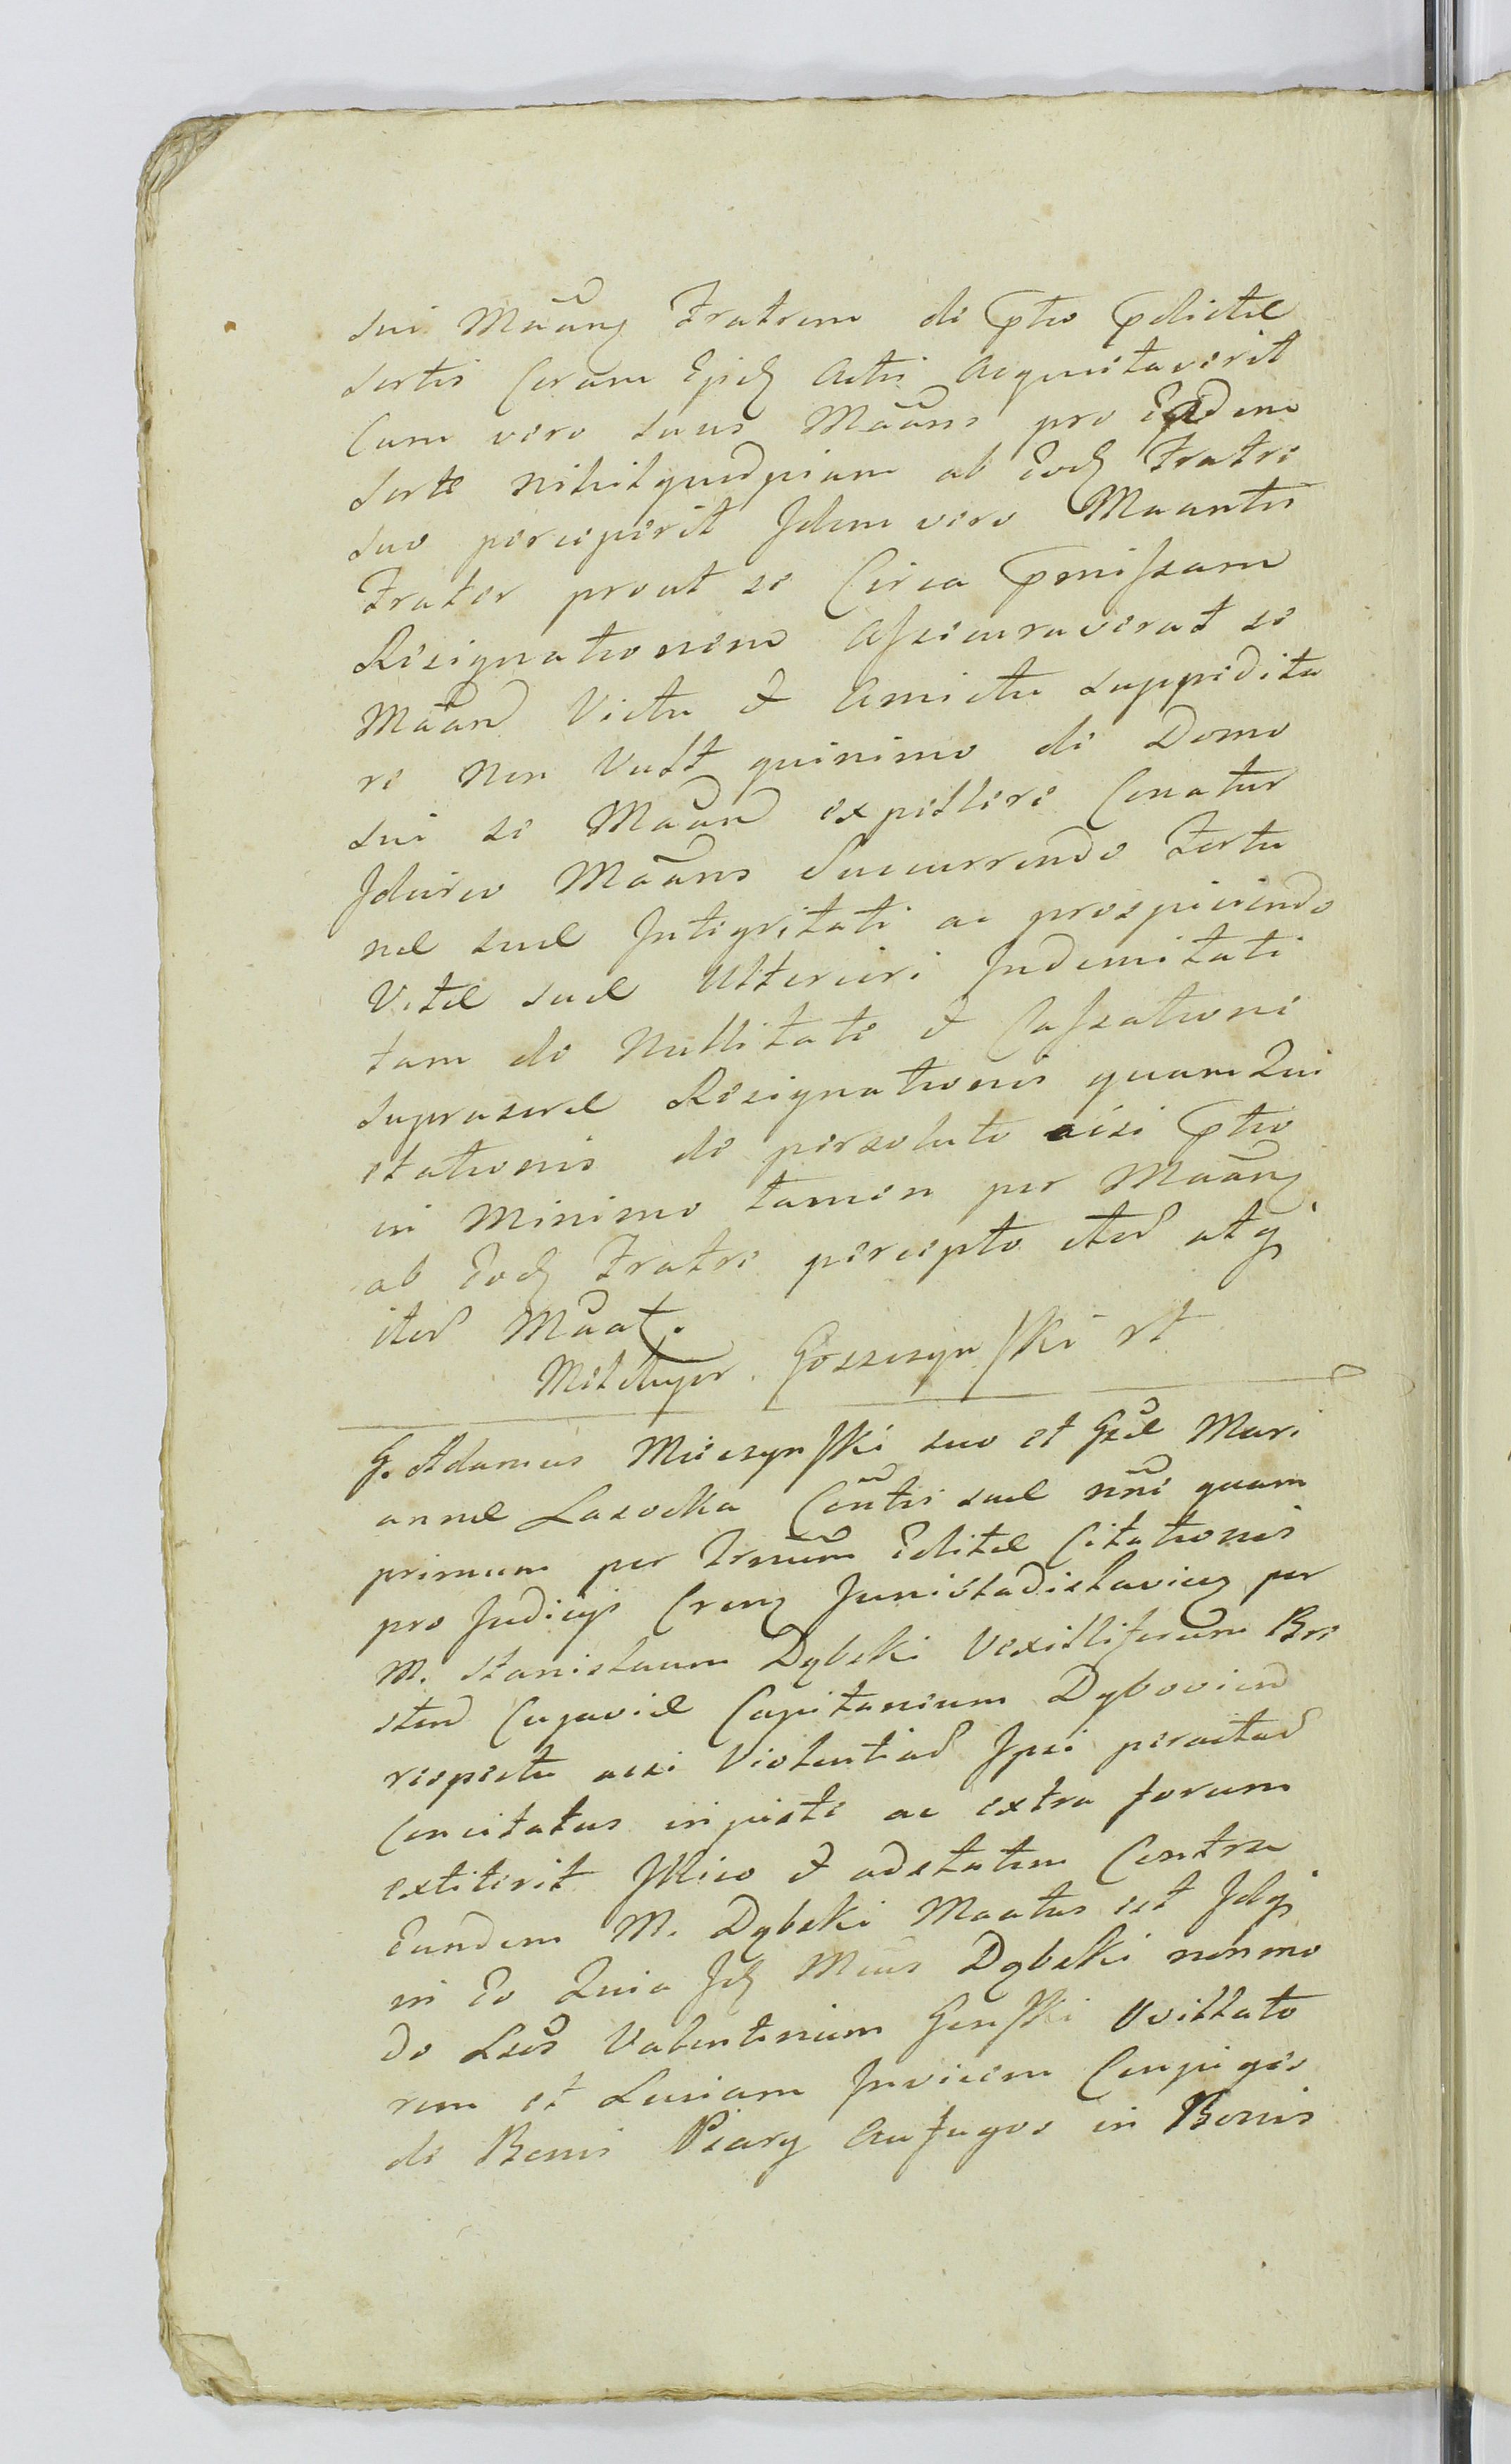 sui Māanᵹ Fratrem de p̄tio p̄dictæ
sortis Coram Ejsdꝫ Actis Acquietaverit
Cum vero suus Māans pro Eadem
sorte nihilquidpiam ab Eodꝫ Fratre
suo perceperit Idem vero Maantis
Frater prout se Circa p̄missam
Resignationem Assecuraverat se
Māan Victu & Amictu suppedita
re Non Vult quinimo de Domo
sui se Māan expellere Conatur
Idcirco Māans Succurrendo Fortu
næ suæ Integritati ac prospiciendo
Vitæ suæ Ulteriori Indemnitati
tam de Nullitate & Cassatione
suprascræ Resignationis quam Qui
etationis de persoluto acsi p̄tio
in Minimo tamen per Māanᵹ
ab Eodꝫ Fratre percepto iter̄ atq;
iter̄ Māat.
Melchyor Goszczynski rt
G. Adamus Mieczynski suo et Gsæ Mari
annæ Lasocka Cōntis suæ nn̄e quam
primum per Trm̄um Editæ Citationis
pro Judicijs Crenᵹ Junivladislavien per
M. Stanislaum Dąbski Vexilliferum Bre
sten Cujaviæ Capitaneum Dybovien
respectu acsi Violentiar̄ Ipsi peractar̄
Concitatus injuste ac extra forum
extiterit Illico & adstatim Contra
Eundem M. Dąbski Maatus est Idq;
in Eo Quia Idꝫ Mcus Dąbski nonmo
do Lsos Valentinum Genski Vvillato
rem et Luciam Invicem Conjuges
de Bonis Psarᵹ Aufugos in Bonis